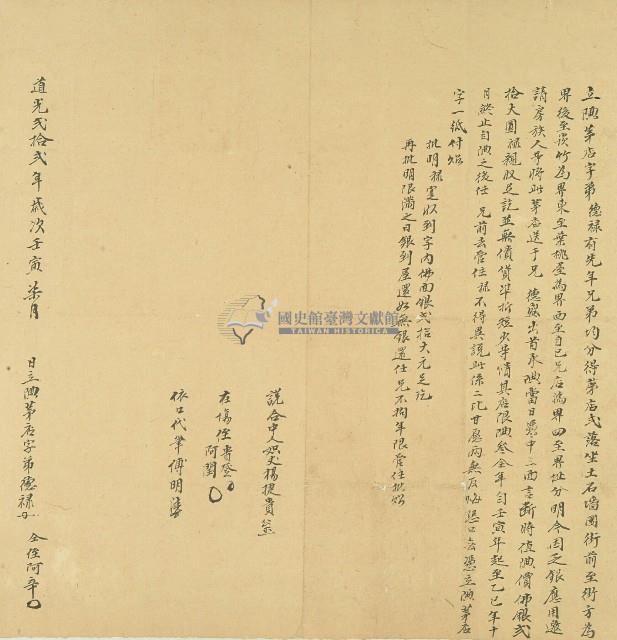 立典茅店字弟德祿有先年兄弟均分得茅店弍落坐土名墻圍街前至街方為
界後至茨竹為界東至葉桃茎為界西至自己兄店為界四至界址分明今因乏銀應用邀
請房族人等將此茅店送于兄德 出首承典當日憑中三面言斷時值典價佛銀弍
拾大圓祿親收足訖並無債貨準折短少等情其店限典叁全年自壬寅年起至乙巳年十
月終止自典之後任兄前去管住祿不得異說此係二比甘愿兩無反悔恐口無憑立典茅店
字一紙付炤
批明祿寔收到字內佛面銀弍拾大元足訖
再批明限滿之日銀到屋還如無銀還任兄不拘年限管住批炤
國史館臺灣文獻館
TAIWAN HISTORICA
說合中人 楊捷貴
在塲侄 貴登
阿閏
依口代筆傅明
道光弍拾弍年歲次壬寅柒月
日立典茅店字弟德祿
仝侄阿辛